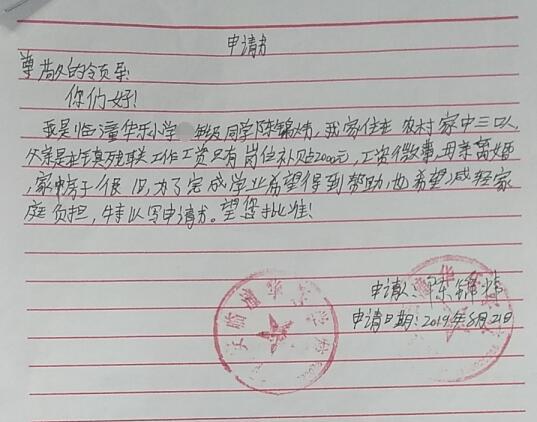 申请书
尊敬的领导:
你们好!
我是临潼华乐小学 年级同学陈锦炜,我家住在农村家中三口人
父亲是在镇残联工作工资只有岗位补贴2000元,工资微薄,母亲离婚
,家中房子很旧,为了完成学业希望得到帮助,也希望减轻家
庭负担,特以写申请书。望您批准!
申请人:陈锦炜
申请日期:2019年8月21日